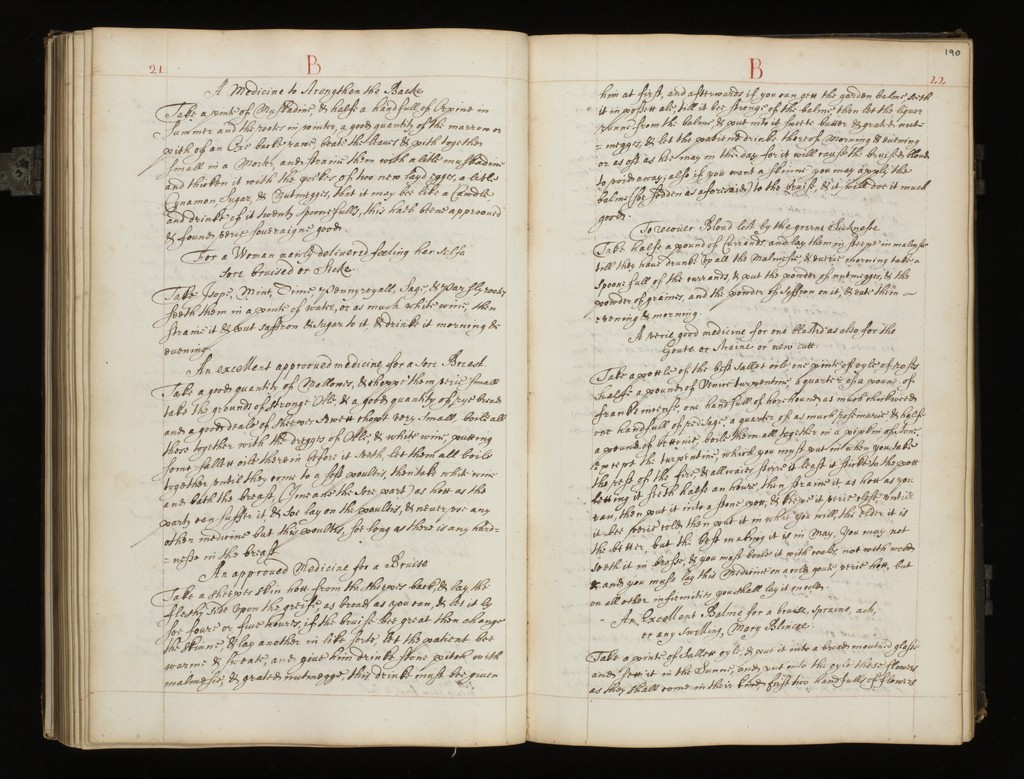 21
B
A Medicine to strengthen the Backe
Take a pinte of Muskadine, & halfe a handfull of Orpine in
Summer and the rootes in winter, a good quantity of the marrow or
pith of an Oxe backe rawe, beate the leaves, & pith together
small in a Morter, and straine them with a litle muskadine
and thicken it with the yolkes of two new layd egges, a litle
Cynamon, Sugar, & Nutmegges, that it may be like a Cawdle
and drinke of it twenty spoonefulls, this hath bene approoved
& found verie soveraigne good.
For a Woman newly delivered feeling her selfe
sore bruised or Sicke
Take Isope, Mint, Time, Pennyroyall, Sage, & Parsly rootes
seeth them in a pinte of water, or as much white wine, then
straine it & put saffron & Sugar to it, & drinke it morning &
evening.
An excellent approoved medicine for a sore Breast
Take a good quantity of Mallowes, & choppe them verie small
take the grounds of stronge Ale, & a good quantity of rye bread
and a good deale of sheepes Suett chopt very small, boile all
these together with the dregges of Ale, & white wine, putting
some sallett oile therein before it seeth, let them all boile
together untill they come to a soft poultis, then take white wine
and bath the breast, (I meane the sore part) as hott as the
party can suffer it, & soe lay on the poultis, & never use any
other medicine but this poultis, soe long as there is any hard-
=nesse in the breast
An approved Medicine for a Bruise
Take a sheepes skin hott from the sheepes back, & lay the
fleshy side upon the greife as broad as you can, & let it ly
foe foure or five houres, if the bruise bee great then change
the skinne, & lay another in like sorte, let the patient bee
warme & sweate, and give him drinke stone pitch with
malmesie, & grated nutmegge, this drink must bee given
190
B
22
him at first, and afterwards if you can gett the garden balme seeth
it in possett ale, till it bee stronge of the balme, then let the liquor
runne from the balme, & put into it sweete butter & grated nut-
=megges, & let the patient drinke thereof Morning & evening
or as oft as hee may in the day, for it will cause the bruised bloud
to void away; also if you want a skinne you may apply the
balme (soe sodden as aforesaid) to the bruise, & it will doe it much
good.
To recover Bloud lost by the greene Sicknesse
Take halfe a pound of Currants, and lay them in steepe in malmsie
till they have drunke up all the Malmesie, & everie morning take a
spoone full of the currants, & put the powder of nutmegges, & the
powder of graines, and the powder of saffron on it, & eate them
evening & morning.
A verie good medicine for one blasted as also for the
Goute or straine or new cutt.
Take a pottle of the best sallet oile, one pinte of oyle of roses
halfe a pound of Venice turpentine, a quarter of a pound of
frankinsense, one handfull of horehound, as much
one handfull of red sage, a quarter of as much rosemarie, & halfe
a pound of bettonie, boile them all together in a pipkin of stone,
except the turpentine, which you must put in when you take
the rest of the fire, & allwaies stirre it least it sticke to the pott
letting it seeth halfe an houre, then straine it as hott as you
can, then put it into a stone pott, & keepe it verie close, untill
it be verie cold, then put it in what you will, the older it is
the better, but the best making it is in May, You may not
seeth it in brasse, & you must boile it with coales, not with wood
and you must lay this Medicine on a cold goute, verie hott, but
on all other infirmities you shall lay it on cold.
An Excellent Balme for a bruise, sprayne, ach,
or any swelling, Mary Blincoe.
Take a pinte of sallett oyle, & put it into a broad mouthed glasse
and sett it in the Sunne, and put into the oyle these flowers
as they shall come in their kinds, first two handfulls of flowers